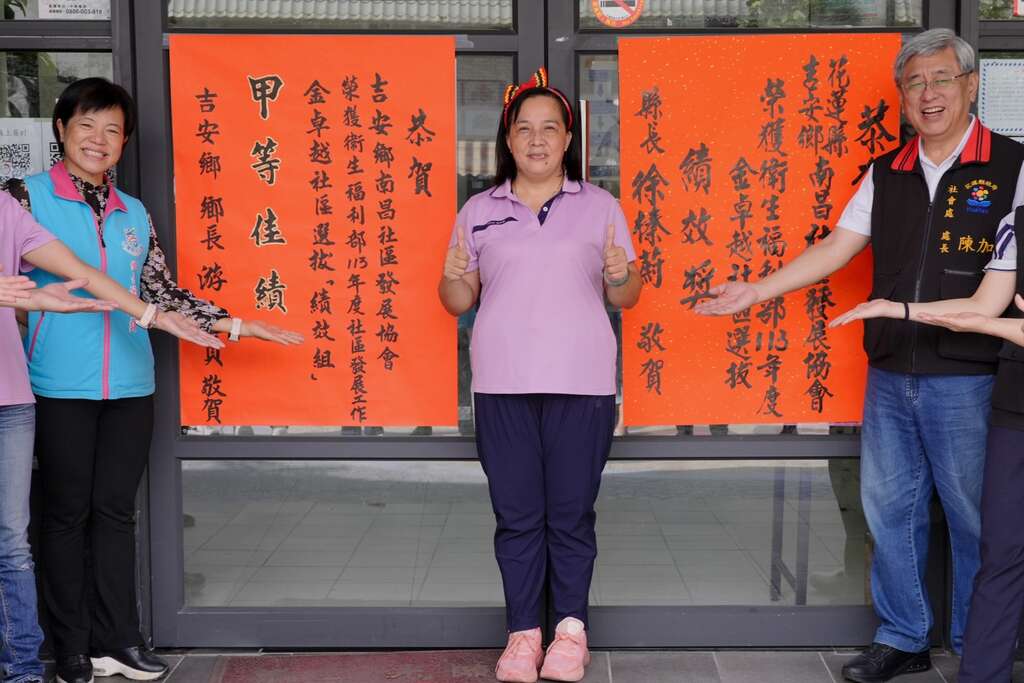 恭賀
吉安鄉南昌社區發展協會
榮獲衛生福利部113年度社區發展工作
金卓越社區選拔「績效組」
甲等佳績
吉安鄉 鄉長 游 敬賀
恭
花蓮縣
吉安鄉南昌社 發展協會
榮獲衛生福利部113年度
金卓越社區選拔
績效獎
縣長 徐榛蔚 敬賀
社會處 處長 陳加